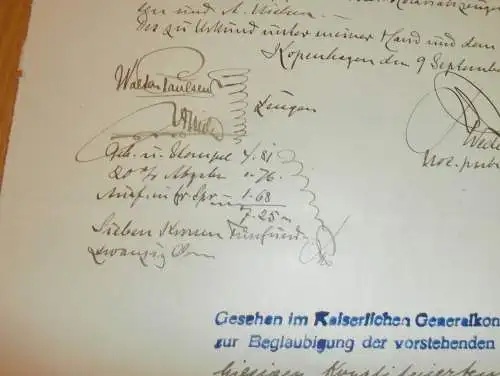 len und A. Nielsen. —
Des zu Urkund unter meiner Hand und dem
Kopenhagen den 9 September
Walter Paulsen
Zeugen
Geb. u. Stempel 4.81
20 % Abgabe " 76
Ausf. in fr Spr. 1.68
7.25
Sieben Kronen fünfund-
zwanzig Öre
Not. publ.
Gesehen im Kaiserlichen Generalkon
zur Beglaubigung der vorstehenden
hiesigen